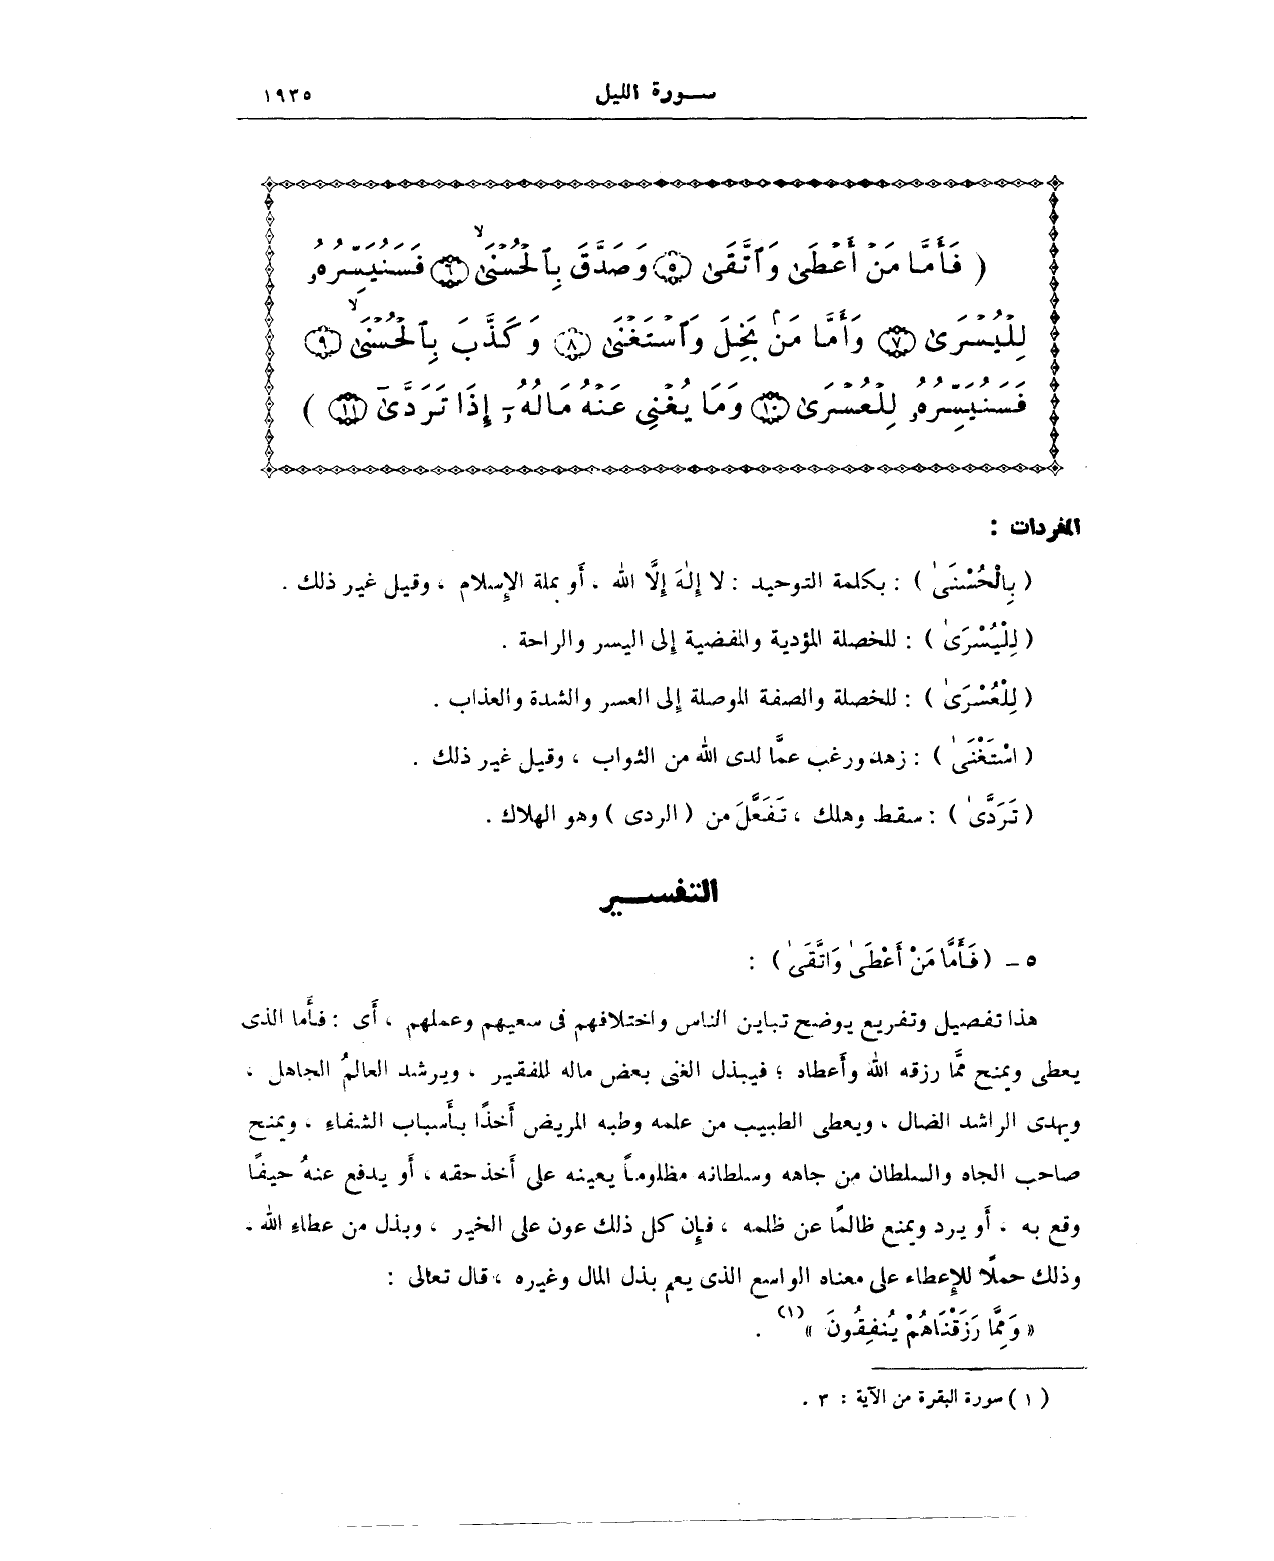 سورة الليل ١٩٣٥
( فَأَمَّا مَنْ أَعْطَىٰ وَٱتَّقَىٰ ٥ وَصَدَّقَ بِٱلْحُسْنَىٰ ٦ فَسَنُيَسِّرُهُۥ
لِلْيُسْرَىٰ ٧ وَأَمَّا مَنۢ بَخِلَ وَٱسْتَغْنَىٰ ٨ وَكَذَّبَ بِٱلْحُسْنَىٰ ٩
فَسَنُيَسِّرُهُۥ لِلْعُسْرَىٰ ١٠ وَمَا يُغْنِى عَنْهُ مَالُهُۥٓ إِذَا تَرَدَّىٰٓ ١١ )
المفردات :
( بِالْحُسْنَىٰ ) : بكلمة التوحيد : لا إِلٰهَ إِلَّا الله ، أَو بملة الإِسلام ، وقيل غير ذلك .
( لِلْيُسْرَىٰ ) : للخصلة المؤدية والمفضية إِلى اليسر والراحة .
( لِلْعُسْرَىٰ ) : للخصلة والصفة الموصلة إِلى العسر والشدة والعذاب .
( اسْتَغْنَىٰ ) : زهد ورغب عمَّا لدى الله من الثواب ، وقيل غير ذلك .
( تَرَدَّىٰ ) : سقط وهلك ، تَفَعَّلَ من ( الردى ) وهو الهلاك .
التفسير
٥ – ( فَأَمَّا مَنْ أَعْطَىٰ وَاتَّقَىٰ ) :
هذا تفصيل وتفريع يوضح تباين الناس واختلافهم فى سعيهم وعملهم ، أَى : فأَما الذى
يعطى ويمنح ممَّا رزقه الله وأَعطاه ؛ فيبذل الغنى بعض ماله للفقير ، ويرشد العالمُ الجاهل ،
ويهدى الراشد الضال ، ويعطى الطبيب من علمه وطبه المريض أَخذًا بأَسباب الشفاءِ ، ويمنح
صاحب الجاه والسلطان من جاهه وسلطانه مظلوماً يعينه على أَخذ حقه ، أَو يدفع عنهُ حيفًا
وقع به ، أَو يرد ويمنع ظالمًا عن ظلمه ، فإِن كل ذلك عون على الخير ، وبذل من عطاءِ الله .
وذلك حملًا للإِعطاء على معناه الواسع الذى يعم بذل المال وغيره ، قال تعالى :
« وَمِمَّا رَزَقْنَاهُمْ يُنفِقُونَ » (١) .
( ١ ) سورة البقرة من الآية : ٣ .